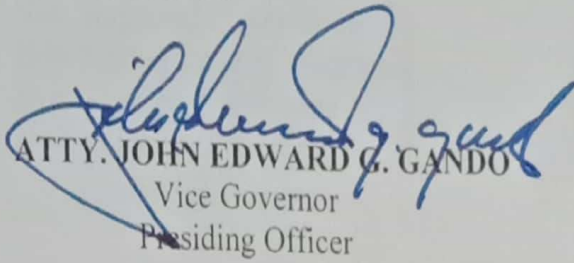 ATTY. JOHN EDWARD G. GANDO
Vice Governor
Presiding Officer